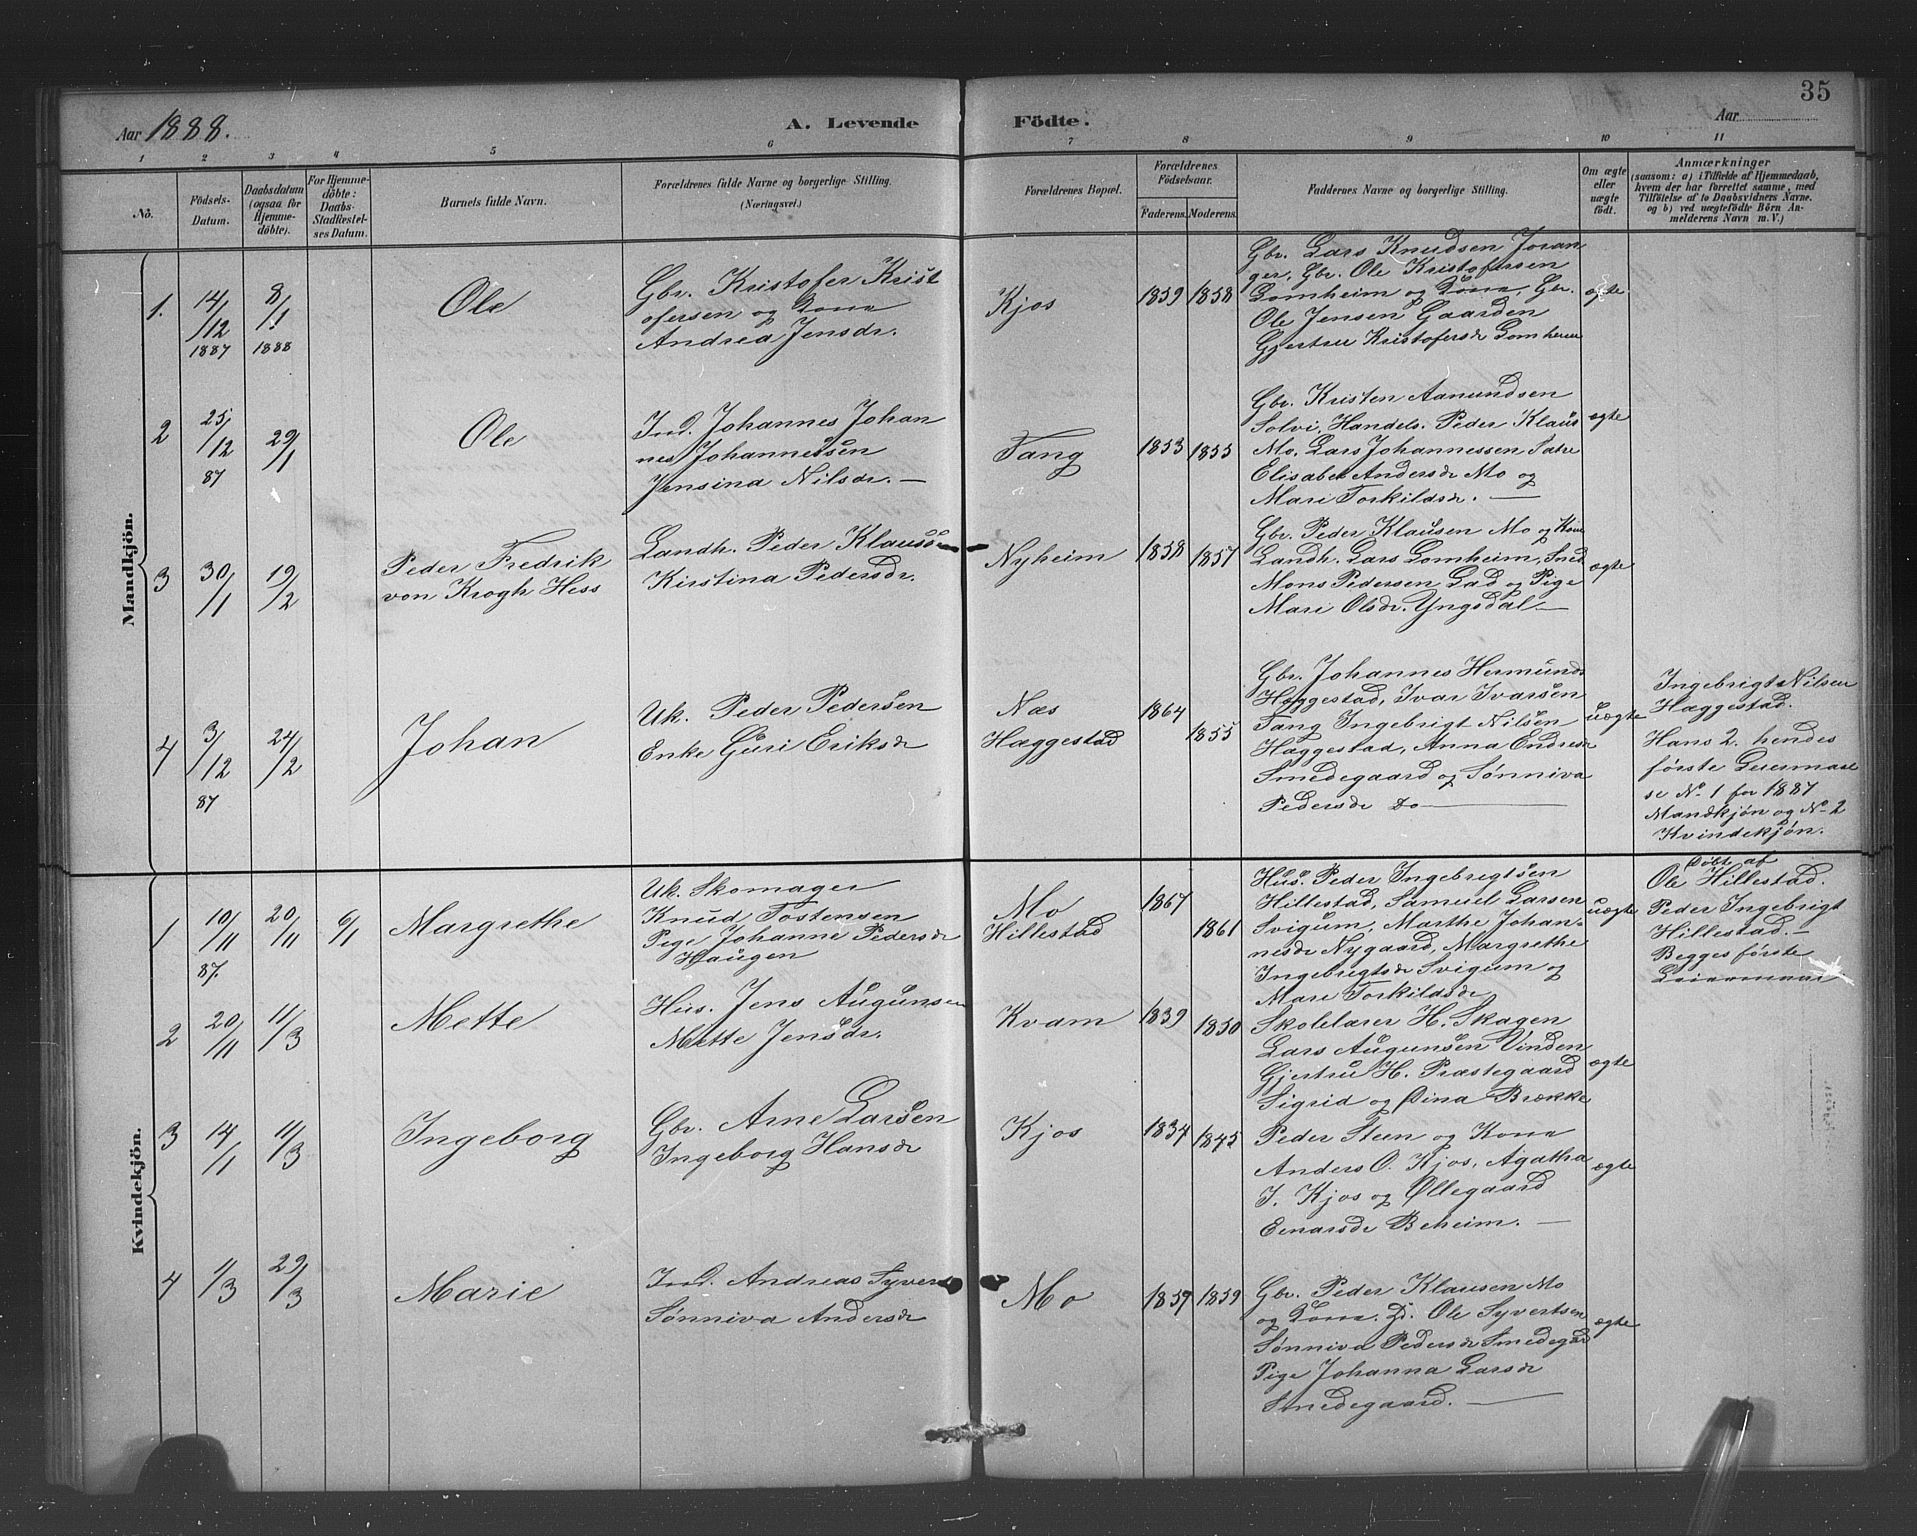 35
Aar 1888.
A. Levende Födte.
Aar
1 2 3 4 5 6 7 8 9 10 11
No.
Födsels-
Datum.
Daabsdatum
(ogsaa for
Hjemme-
döbte).
For Hjemme-
döbte:
Daabs-
Stadfæstel-
ses Datum.
Barnets fulde Navn.
Forældrenes fulde Navne og borgerlige Stilling.
(Næringsvei.)
Forældrenes Bopæl.
Forældrenes
Födselsaar.
Faderens. Moderens.
Faddernes Navne og borgerlige Stilling.
Om ægte
eller
uægte
födt.
Anmærkninger
(saasom: a) i Tilfælde af Hjemmedaab,
hvem der har forrettet samme, med
Tilföielse af to Daabsvidners Navne.
og b) ved uægtefödte Börn An-
melderens Navn m. V.)
Mandkjön.
1. 14/12 1887
8/1 1888
Ole
Gbr. Kristofer Krist
ofersen og Kone
Andrea Jensdr.
Kjos
1859 1858
Gbr. Lars Knudsen Joran
ger, Gbr. Ole Kristofersen
Lomheim og Kone, Gbr.
Ole Jensen Gaarden
Gjertru Kristofersdr Lomheim
ægte
2 25/12 87
29/1
Ole
Ind. Johannes Johan
nes Johannessen
Jensina Nilsdr. —
Tang
1853 1855
Gbr. Kristen Aamundsen
Solvi, Handels. Peder Klaus
Mo. Lars Johannessen Sætre
Elisabet Andersdr Mo og
Mari Torkildsdr. —
ægte
3 30/1
19/2
Peder Fredrik
von Krogh Hess
Landh. Peder Klauss
Kirstina Pedersdr.
Nyheim
1858 1857
Gbr. Peder Klausen Mo og Kone
Landh. Lars Lomheim, Ind
Mons Pedersen Lad og Pige
Mari Olsdr. Yngsdal —
ægte
4 3/12 87
24/2
Johan
Uk. Peder Pedersen
Enke Guri Eriksdr
Næs
Hæggestad
1864 1855
Gbr. Johannes Hermunds
Hæggestad, Ivar Ivarsen
Tang Ingebrigt Nilsen
Hæggestad, Anna Endresdr
Smedegaard og Sønniva
Pedersdr do —
uægte
Ingebrigt Nilsen
Hæggestad.
Hans 2. hendes
første Leiermaal
se No. 1 for 1887
Mandkjön og No. 2
Kvindekjön.
Kvindekjön.
1 10/11 87.
20/11
6/1
Margrethe
Uk. Skomager
Knud Tostensen
Pige Johanne Pedersdr
Haugen
Mo
Hillestad
1867 1861
Hus. Peder Ingebrigtsen
Hillestad, Samuel Larsen
Svigum, Marthe Johan-
nesdr Nygaard, Margrethe
Ingebrigtsdr Svigum og
Mari Torkildsdr
uægte
Døbt af
Ole Hillestad.
Peder Ingebrigt
Hillestad. —
Begges første
Leiermaal
2 20/11
11/3
Mette
Hus. Jens Augunsen
Mette Jensdr.
Kvam
1839 1850
Skolelærer H. Skagen
Lars Augunsen Vinden
Gjertru H. Præstegaard
Sigrid og Dina Brække
ægte
3 14/1
11/3
Ingeborg
Gbr. Arne Larsen
Ingeborg Hansdr
Kjos
1834 1845
Peder Steen og Kone
Anders O. Kjos, Agatha
I. Kjos og Øllegaard
Einarsdr Beheim. —
ægte
4 1/3
29/3
Marie
Ind. Andreas Syvers
Sønniva Andersdr
Mo
1859 1859
Gbr. Peder Klausen Mo
og Kone. Ole Syvertsen
Sønniva Pedersdr Smedegrd
Pige Johanna Larsdr
Smedegaard. —
ægte